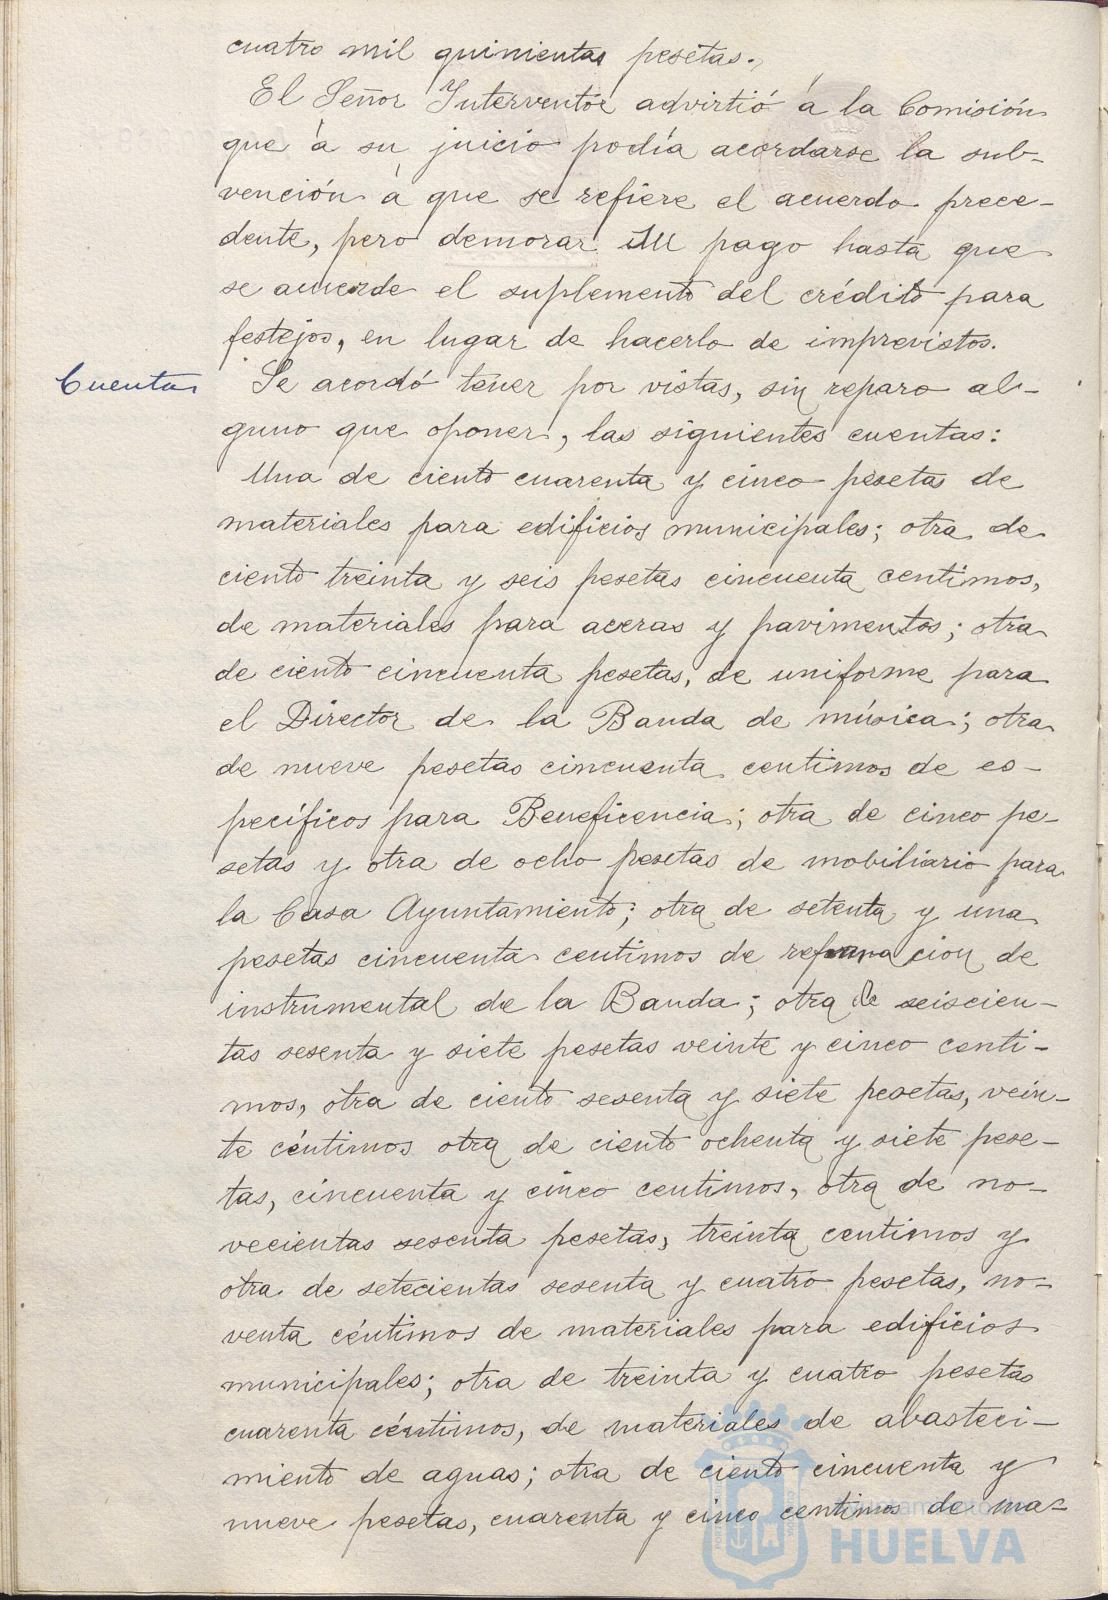 cuatro mil quinientas pesetas.
El Señor Interventor advirtió á la Comisión
que á su juicio podía acordarse la sub-
vención á que se refiere el acuerdo prece-
dente, pero demorar su pago hasta que
se acuerde el suplemento del crédito para
festejos, en lugar de hacerlo de imprevistos.
Cuentas
Se acordó tener por vistas, sin reparo al-
guno que oponer, las siguientes cuentas:
Una de ciento cuarenta y cinco pesetas de
materiales para edificios municipales; otra de
ciento treinta y seis pesetas cincuenta centimos,
de materiales para aceras y pavimentos; otra
de ciento cincuenta pesetas, de uniforme para
el Director de la Banda de música; otra
de nueve pesetas cincuenta centimos de es-
pecíficos para Beneficencia; otra de cinco pe-
setas y otra de ocho pesetas de mobiliario para
la Casa Ayuntamiento; otra de setenta y una
pesetas cincuenta centimos de de
instrumental de la Banda; otra de seiscien-
tas sesenta y siete pesetas veinte y cinco centi-
mos, otra de ciento sesenta y siete pesetas, vein-
te céntimos otra de ciento ochenta y siete pese-
tas, cincuenta y cinco centimos, otra de no-
vecientas sesenta pesetas, treinta centimos y
otra de setecientas sesenta y cuatro pesetas, no-
venta céntimos de materiales para edificios
municipales; otra de treinta y cuatro pesetas
cuarenta céntimos, de materiales de abasteci-
miento de aguas; otra de ciento cincuenta y
nueve pesetas, cuarenta y cinco centimos de ma-
Ayuntamiento de
HUELVA